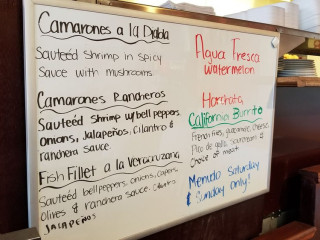 Camarones a la Diabla
Sauteéd shrimp in spicy
Sauce with mushrooms.
Camarones Rancheros
Sauteéd Shrimp w/bell peppers
onions, Jalapeños, Cilantro &
ranchera sauce.
Fish Fillet a la Veracruzana
Sauteéd bell peppers, onions, capers
olives & ranchera sauce. Cilantro
JALAPEÑOS
Agua Fresca
Watermelon
Horchata
California Burrito
French fries, guacamole, cheese,
Pico de gallo, sour cream &
Choice of meat
Menudo Saturday
& Sunday only!